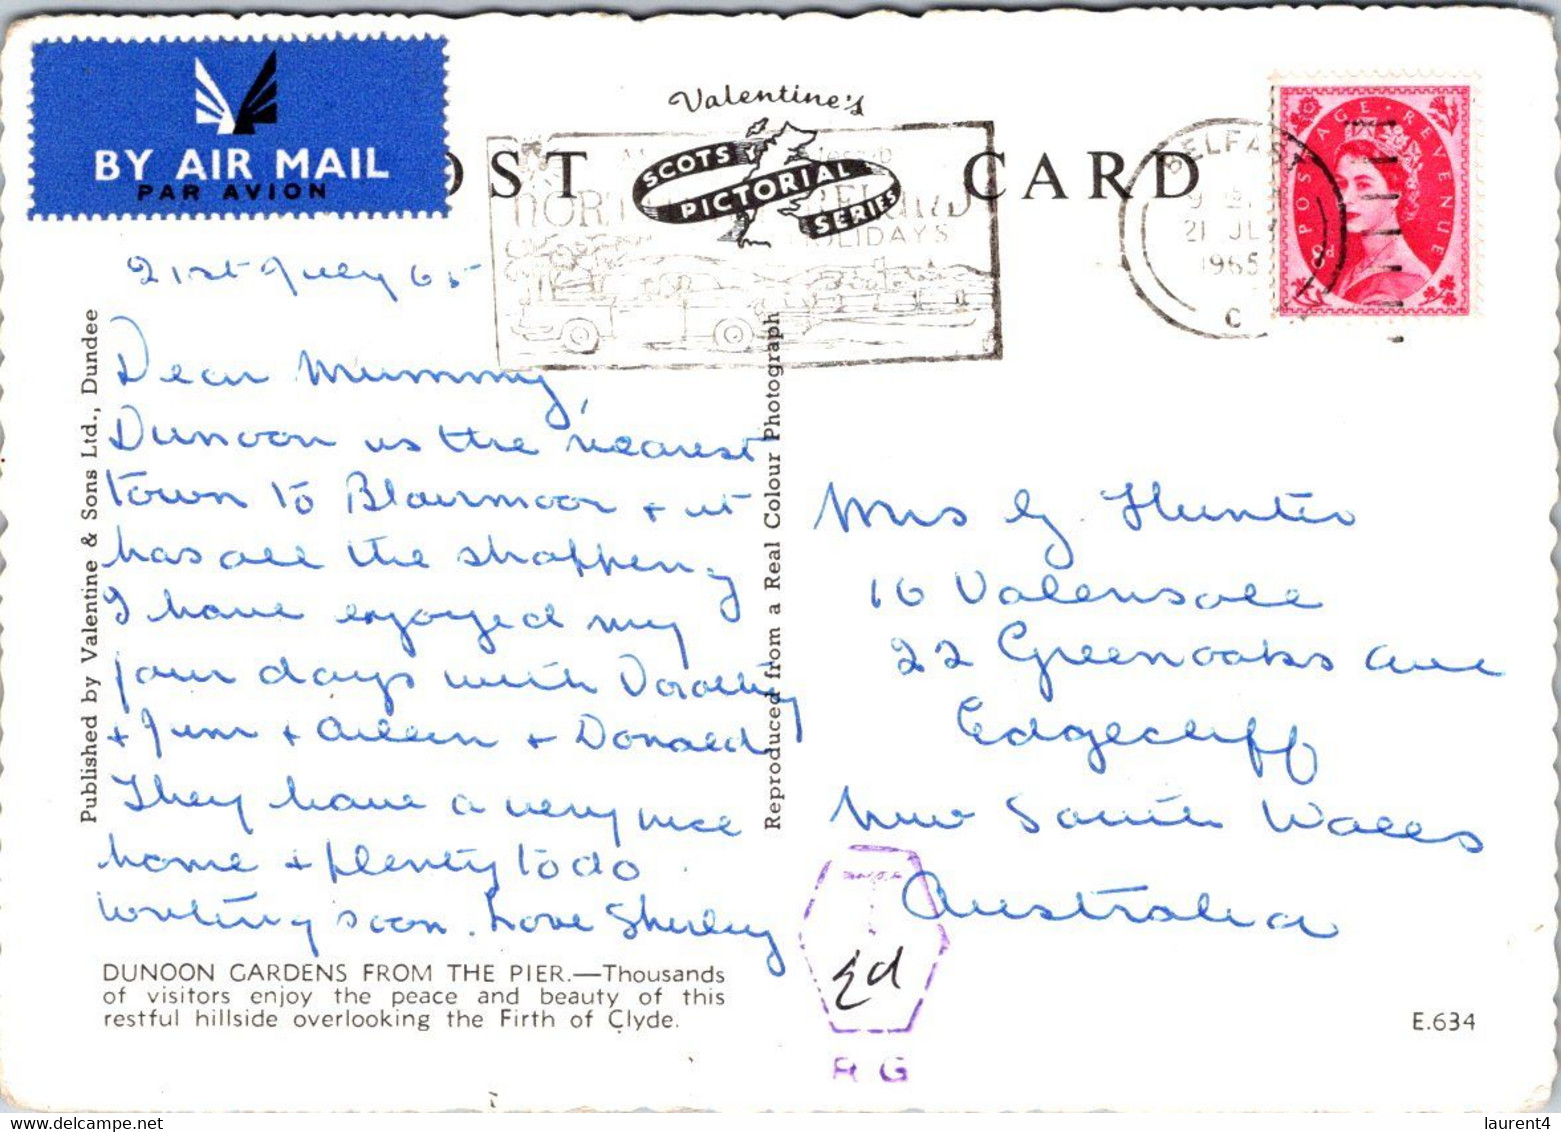 BY AIR MAIL
PAR AVION
Valentine's
SCOTS
PICTORIAL
SERIES
OST CARD
HOLIDAYS
BELFAST
9
21 JLY
1965
C
POSTAGE REVENUE
8d
21st July 65
Dear Mummy,
Dunoon is the nearest
town to Blairmoor + it
has all the shopping
I have enjoyed my
four days with Dorothy
+ Jim + Aileen + Donald
They have a very nice
home + plenty to do
Writing soon. Love Shirley
Published by Valentine & Sons Ltd., Dundee
Reproduced from a Real Colour Photograph
Mrs G. Hunter
16 Valensole
22 Greenoaks Ave
Edgecliff
New South Wales
Australia
T
RG
DUNOON GARDENS FROM THE PIER.—Thousands
of visitors enjoy the peace and beauty of this
restful hillside overlooking the Firth of Clyde.
E.634
laurent4